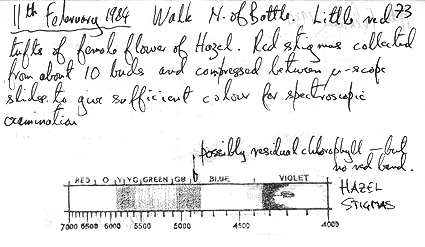 11th February 1984 Walk N. of Battle. Little red 73
tufts of female flower of Hazel. Red stigmas collected
from about 10 buds and compressed between μ-scope
slides to give sufficient colour for spectroscopic
examination
possibly residual chlorophyll – but
no red band.
RED O Y YG GREEN GB BLUE VIOLET
HAZEL
STIGMAS
7000 6500 6000 5500 5000 4500 4000